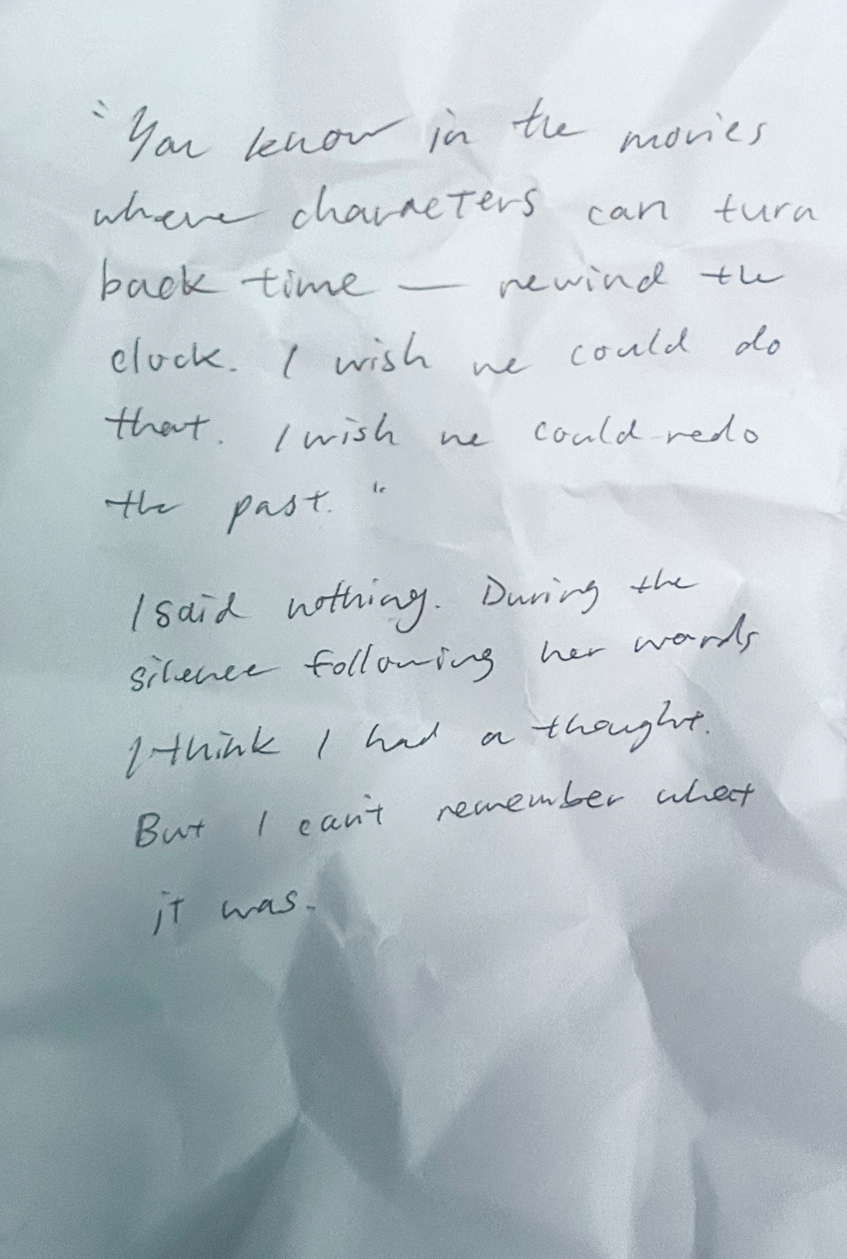 "You know in the movies
where characters can turn
back time — rewind the
clock. I wish we could do
that. I wish we could redo
the past."
I said nothing. During the
silence following her words
I think I had a thought.
But I can't remember what
it was.